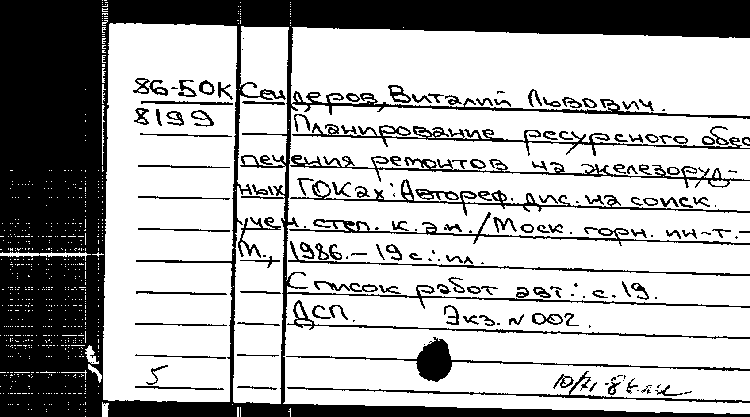 86-БОК Сендеров, Виталий Львович.
8199 Планирование ресурсного обес
печения ремонтов на железоруд-
ных ГОКах: Автореф. дис. на соиск.
учен. степ. к.э.н. / Моск. горн. ин-т. –
М., 1986. – 19 с.: ил.
Список работ авт.: с. 19.
ДСП. Экз. № 002.
5